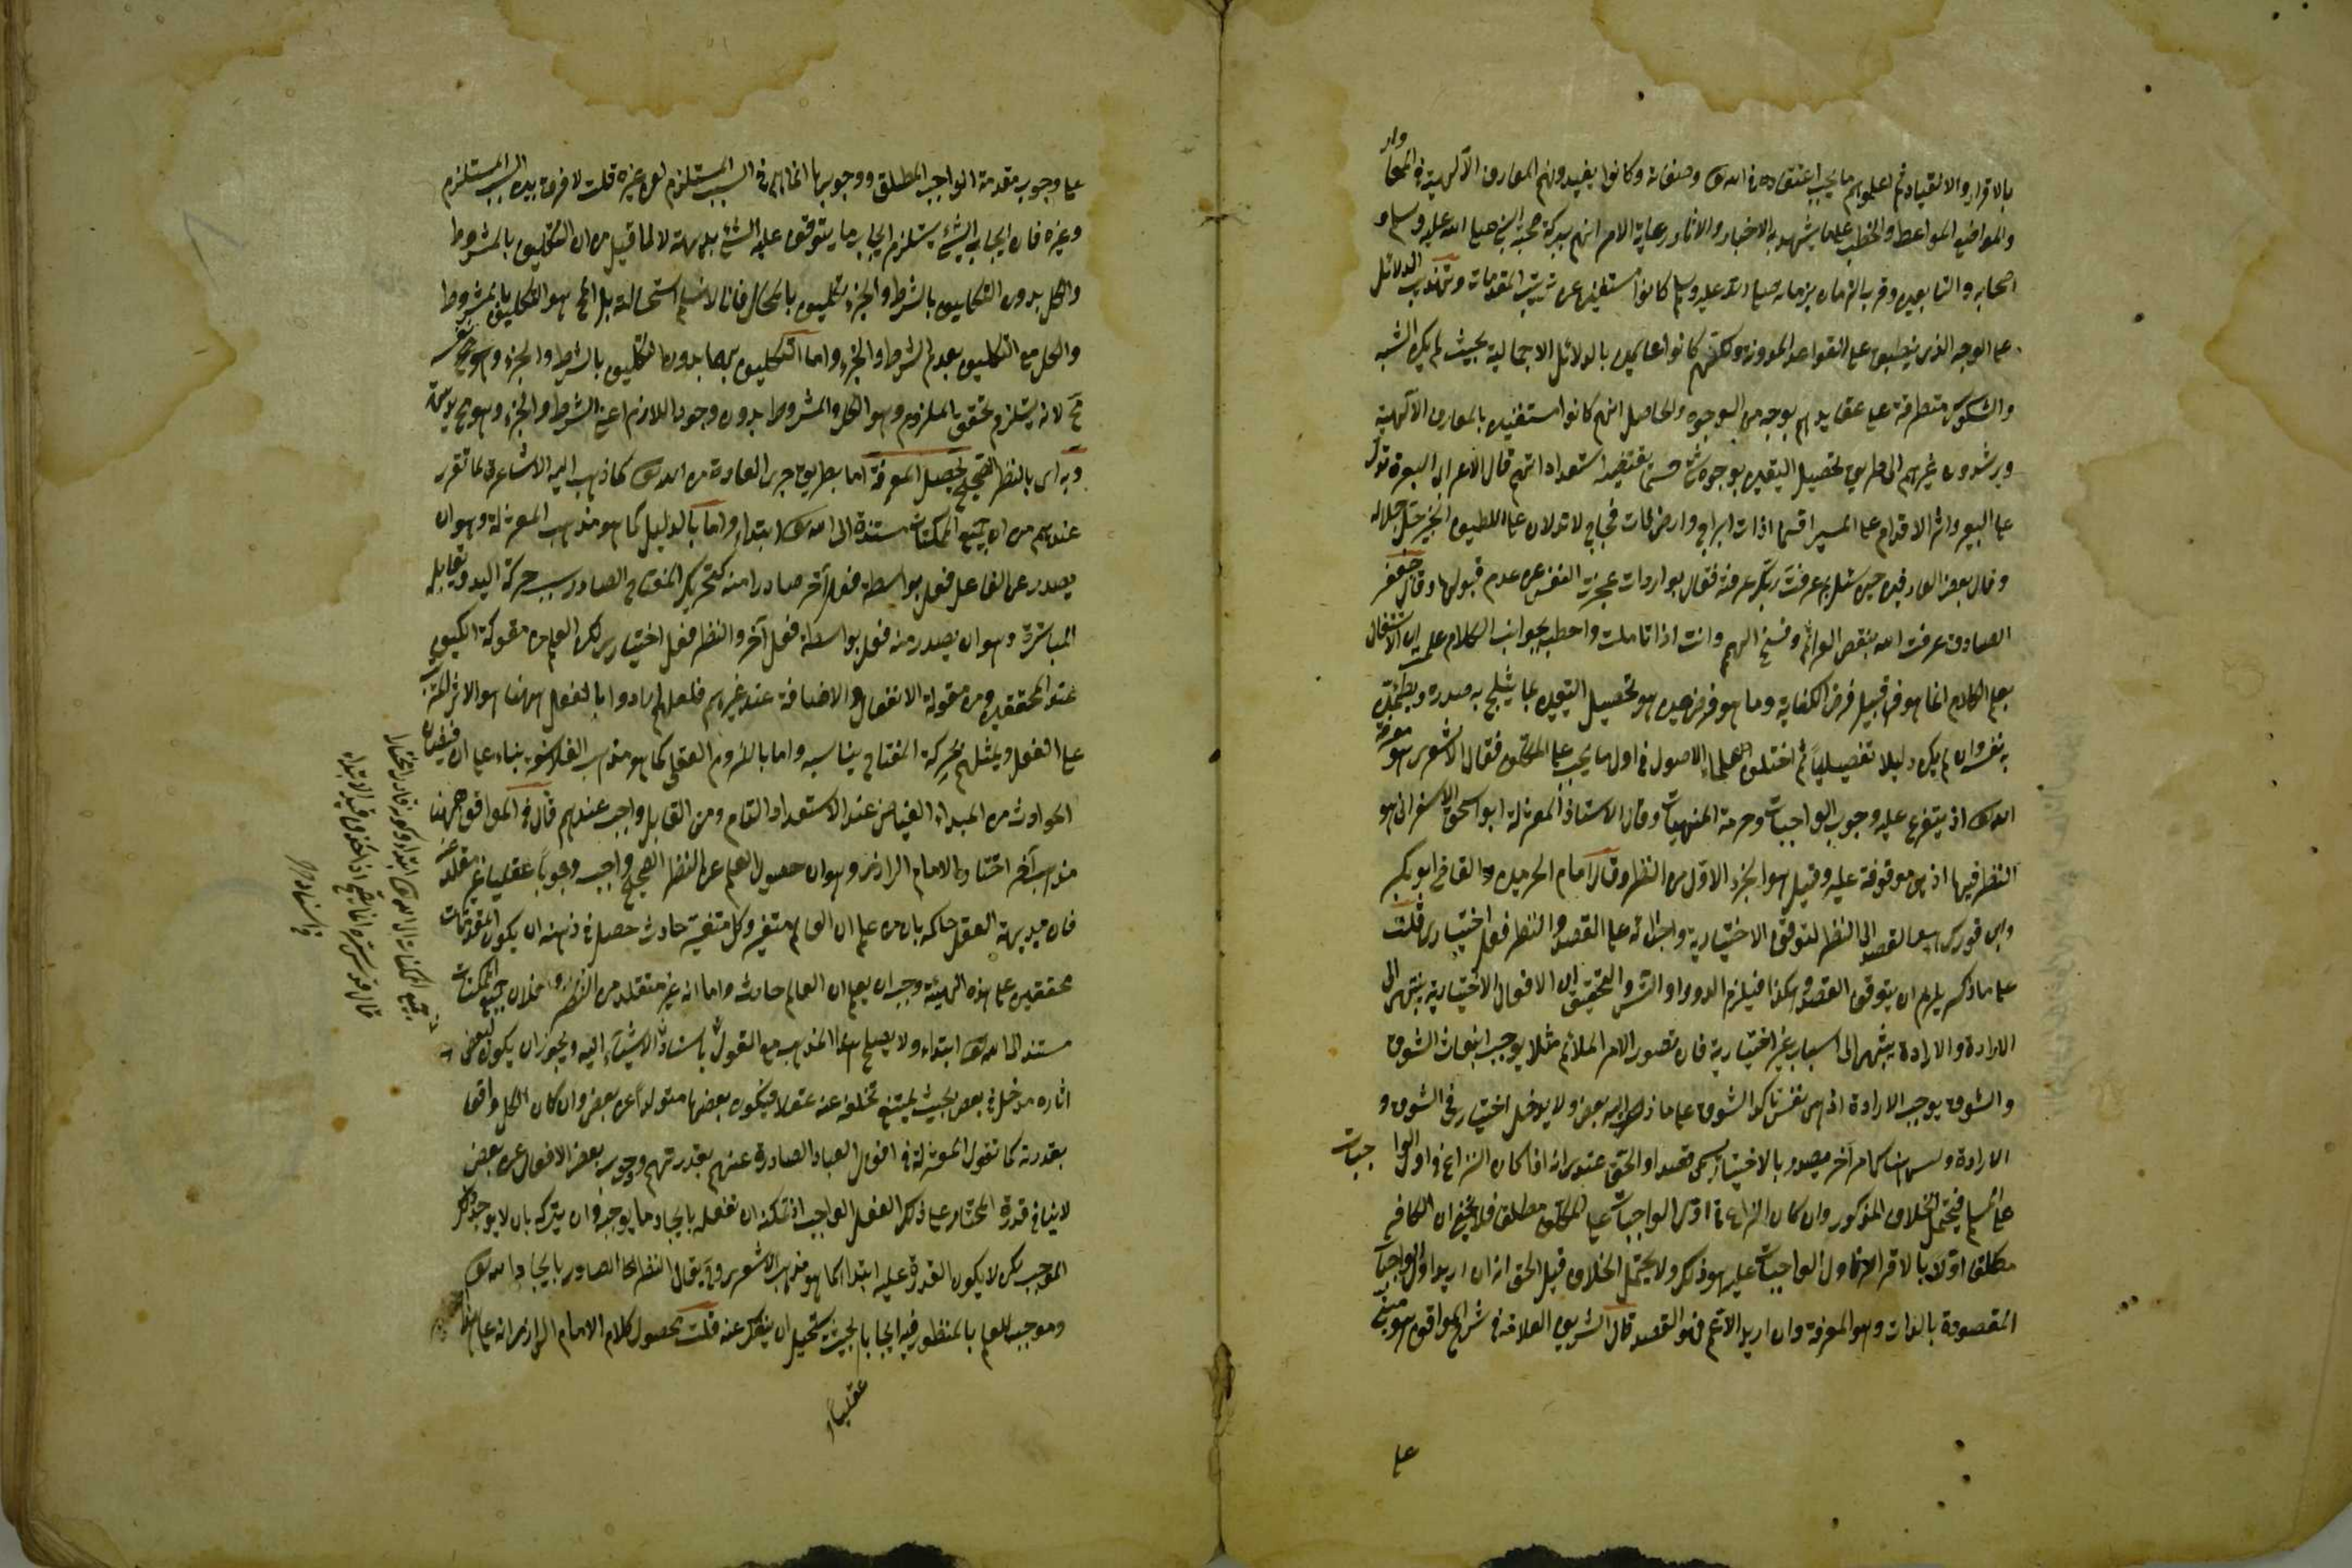 بالاقرار والانقياد ثم اعلموهم ما يجب اعتقاده في الله تعالى وصفاته وكانوا يفيدونهم المعارف الالهية في المحاورات
والمواضع المواعظ والخطب على ما يشهد به الاخبار والآثار رعاية الامر انهم ببركة صحبة النبي صلى الله عليه وسلم و
اصحابه والتابعين وقرب الزمان بزمانه صلى الله عليه وسلم كانوا مستغنين عن ترتيب المقدمات وتهذيب الدلائل
على الوجه الذي ينطبق على القواعد المدونة ولكنهم كانوا عالمين بالدلائل الاجمالية بحيث لم يكن الشبه
والشكوك متطرقة على عقايدهم بوجه من الوجوه والحاصل انهم كانوا مستفيدين بالمعارف الالهية
ويرشدون غيرهم الى طريق تحصيل اليقين بوجوه شتى حسبما يقتضيه استعداداتهم قال الاعرابي البعرة تدل
على البعير واثر الاقدام على المسير افسماء ذات ابراج وارض ذات فجاج لا تدلان على اللطيف الخبير جل جلاله
وقال بعض العارفين حين سئل بم عرفت ربك عرفته فقال بواردات عجزت النفس عن عدم قبولها وقال جعفر
الصادق عرفت الله بنقض العزائم وفسخ الهمم وانت اذا تأملت واحطت بجوانب الكلام علمت ان الاشتغال
بعلم الكلام انما هو من قبيل فرض الكفاية وما هو فرض عين هو تحصيل اليقين بما يثلج به صدره ويطمئن
به نفسه وان لم يكن دليلا تفصيليا ثم اختلف علماء الاصول في اول ما يجب على المكلف فقال الاشعري هو معرفة
الله تعالى اذ يتفرع عليه وجوب الواجبات وحرمة المنهيات وقال الاستاذ المعتزلة ابو اسحق الاسفرايني هو
النظر فيها اذ هي موقوفة عليه وقيل هو الجزء الاول من النظر وقال امام الحرمين والقاضي ابو بكر
وابن فورك هو القصد الى النظر لتوقف الاختيارية واجزائه على القصد والنظر فعل اختياري قلت
على ما ذكر يلزم ان يتوقف القصد وهكذا فيلزم الدور او التس والتحقيق ان الافعال الاختيارية ينتهي الى
الارادة والارادة ينتهي الى اسباب غير اختيارية فان تصور الامر الملائم مثلا يوجب انبعاث الشوق
والشوق يوجب الارادة اذ هي نفس تأكد الشوق على ما ذهب اليه بعض ولا يدخل اختيار في الشوق و
الارادة وليس هناك امر آخر يصدر بالاختيار يسمى قصدا والحق عندي انه اذا كان النزاع في اول الواجبات
على المسلم فيحتمل الخلاف المذكور وان كان النزاع في اول الواجبات على المكلف مطلقا فلا يخفى ان الكافر
مكلف اولا بالاقرار فاول الواجبات عليه هو ذلك ولا يحتمل الخلاف قيل الحق انه ان اريد اول الواجبات
المقصودة بالذات وهو المعرفة وان اريد الاعم فهو القصد قال الشريف العلامة في شرح المواقف هو مبني
على
على وجوب مقدمة الواجب المطلق ووجوبها انما يتم في السبب المستلزم لا في غيره قلت لا فرق بين السبب المستلزم
وغيره فان ايجاب الشيء يستلزم ايجاب ما يتوقف عليه الشيء بداهة لا لما قيل من ان التكليف بالمشروط
والكل بدون التكليف بالشرط والجزء تكليف بالمحال فانا لا نسلم استحالته بل المح هو التكليف بالمشروط
والكل مع التكليف بعدم الشرط والجزء واما التكليف بهما بدون التكليف بالشرط والجزء وهو في نفسه
مح لانه يستلزم تحقق الملزوم وهو الكل والمشروط بدون وجود اللازم اعني الشرط والجزء وهو مح بديهة
وبه اي بالنظر الصحيح يحصل المعرفة اما بطريق جري العادة من الله تعالى كما ذهب اليه الاشاعرة لما تقرر
عندهم من ان جميع الممكنات مستندة الى الله تعالى ابتداء واما بالدليل كما هو مذهب المعتزلة وهو ان
يصدر عن الفاعل فعل بواسطة فعل آخر صادر امنه كتحريك المفتاح الصادر بسبب حركة اليد ويقابله
المباشرة وهو ان يصدر منه فعل بواسطة فعل آخر والنظر فعل اختياري لكن العلم من مقولة الكيف
عند المحققين ومن مقولة الانفعال والاضافة عند غيرهم فلعلهم ارادوا بالفعل ههنا هو الاثر المترتب
على الفعل ويمثلهم بحركة المفتاح يناسبه واما باللزوم العقلي كما هو مذهب الفلاسفة بناء على ان فيضان
الحوادث من المبداء الفياض عند الاستعداد التام ومن القابل واجب عندهم قال في المواقف ههنا
مذهب آخر اختاره الامام الرازي وهو ان حصول العلم عن النظر الصحيح واجب وجوبا عقليا غير متولد عنه
فان بديهة العقل حاكمة بان من علم ان العالم متغير وكل متغير حادث حصل في ذهنه ان يكون المقدمات
محققين على هذه الهيئة وجب ان يعلم ان العالم حادث واما انه غير متولد من النظر فلان جميع الممكنات
مستند الى الله تعالى ابتداء ولا يصح هذا المذهب مع القول باستناد الاشياء اليه وتجوز ان يكون لبعض
اثاره مدخل في بعض بحيث يمتنع تخلفه عنه عقلا فيكون بعضها متولدا عن بعض وان كان الكل واقعا
بقدرته كما تقول المعتزلة في افعال العباد الصادرة عنهم بقدرتهم ووجوب بعض الافعال عن بعض
لا ينافي قدرة المختار على ذلك الفعل الواجب اذ تمكنه ان يفعله بايجاد ما يوجبه وان يتركه بان لا يوجد ذلك
الموجب لكن لا يكون القدرة عليه ابتداء كما هو مذهب الاشعري وقد يقال النظر الصادر بايجاد الله تعالى
وموجب للعلم بالمنظور فيه ايجابا بحيث يستحيل ان ينفك عنه قلت محصول كلام الامام الرازي انه على هذا
عقليا
جميع الممكنات الى الله تعالى ابتداء وكونه قادرا مختارا
قال قدس سره انما يصح اذا حذف قيد الابتداء
في استناد